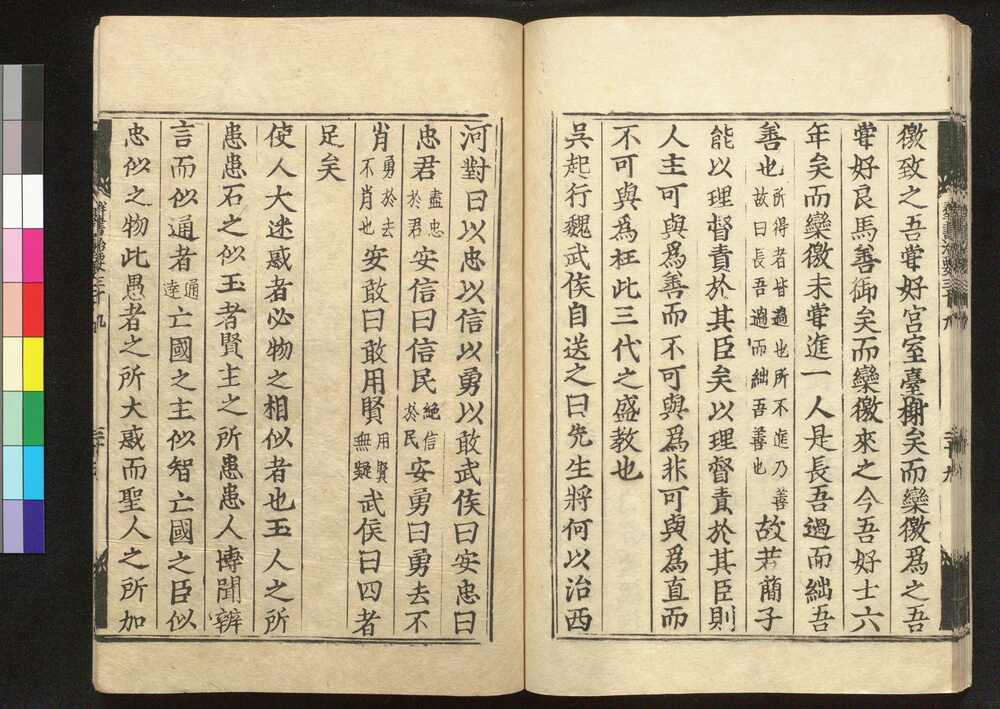 徼致之吾甞好宮室臺榭矣而欒徼爲之吾
甞好良馬善御矣而欒徼來之今吾好士六
年矣而欒徼未甞進一人是長吾過而絀吾
善也所得者皆過也所不進乃善故曰長吾過而絀吾善也故若蕳子
能以理督責於其臣矣以理督責於其臣則
人主可與爲善而不可與爲非可與爲直而
不可與爲枉此三代之盛教也
吳起行魏武侯自送之曰先生將何以治西
河對曰以忠以信以勇以敢武侯曰安忠曰
忠君盡忠於君安信曰信民絶信於民安勇曰勇去不
肖勇於去不肖也安敢曰敢用賢用賢無疑武侯曰四者
足矣
使人大迷惑者必物之相似者也玉人之所
患患石之似玉者賢主之所患患人博聞辨
言而似通者通達亡國之主似智亡國之臣似
忠似之物此愚者之所大惑而聖人之所加